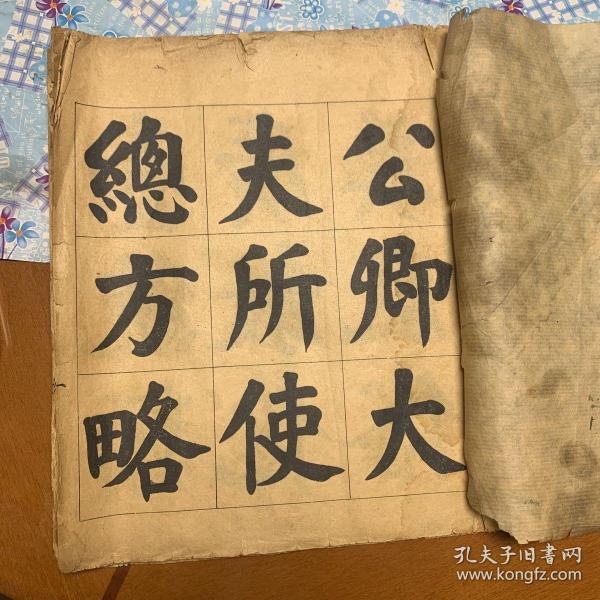 公卿大
夫所使
總方略
孔夫子旧書网
www.kongfz.com